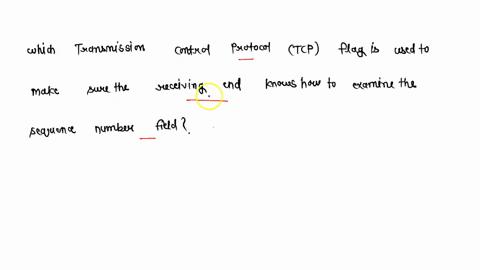 which Transmission control Protocol (TCP) flag is used to
make sure the receiving end knows how to examine the
sequence number field?